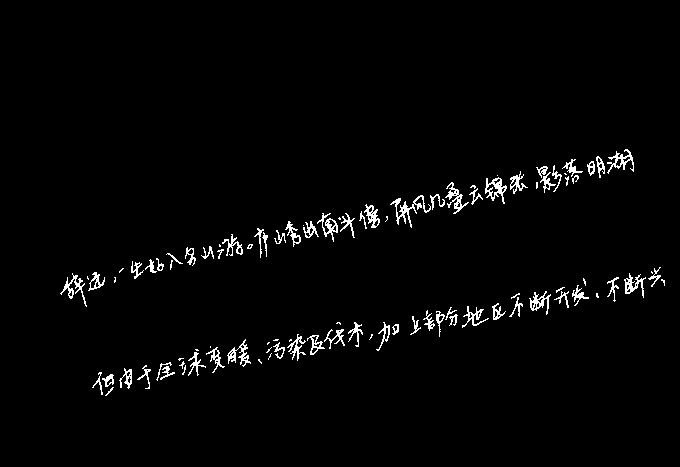 辞远,一生好入名山游。庐山秀出南斗傍,屏风九叠云锦张,影落明湖
但由于全球变暖、污染及伐木,加上部分地区不断开发、不断兴